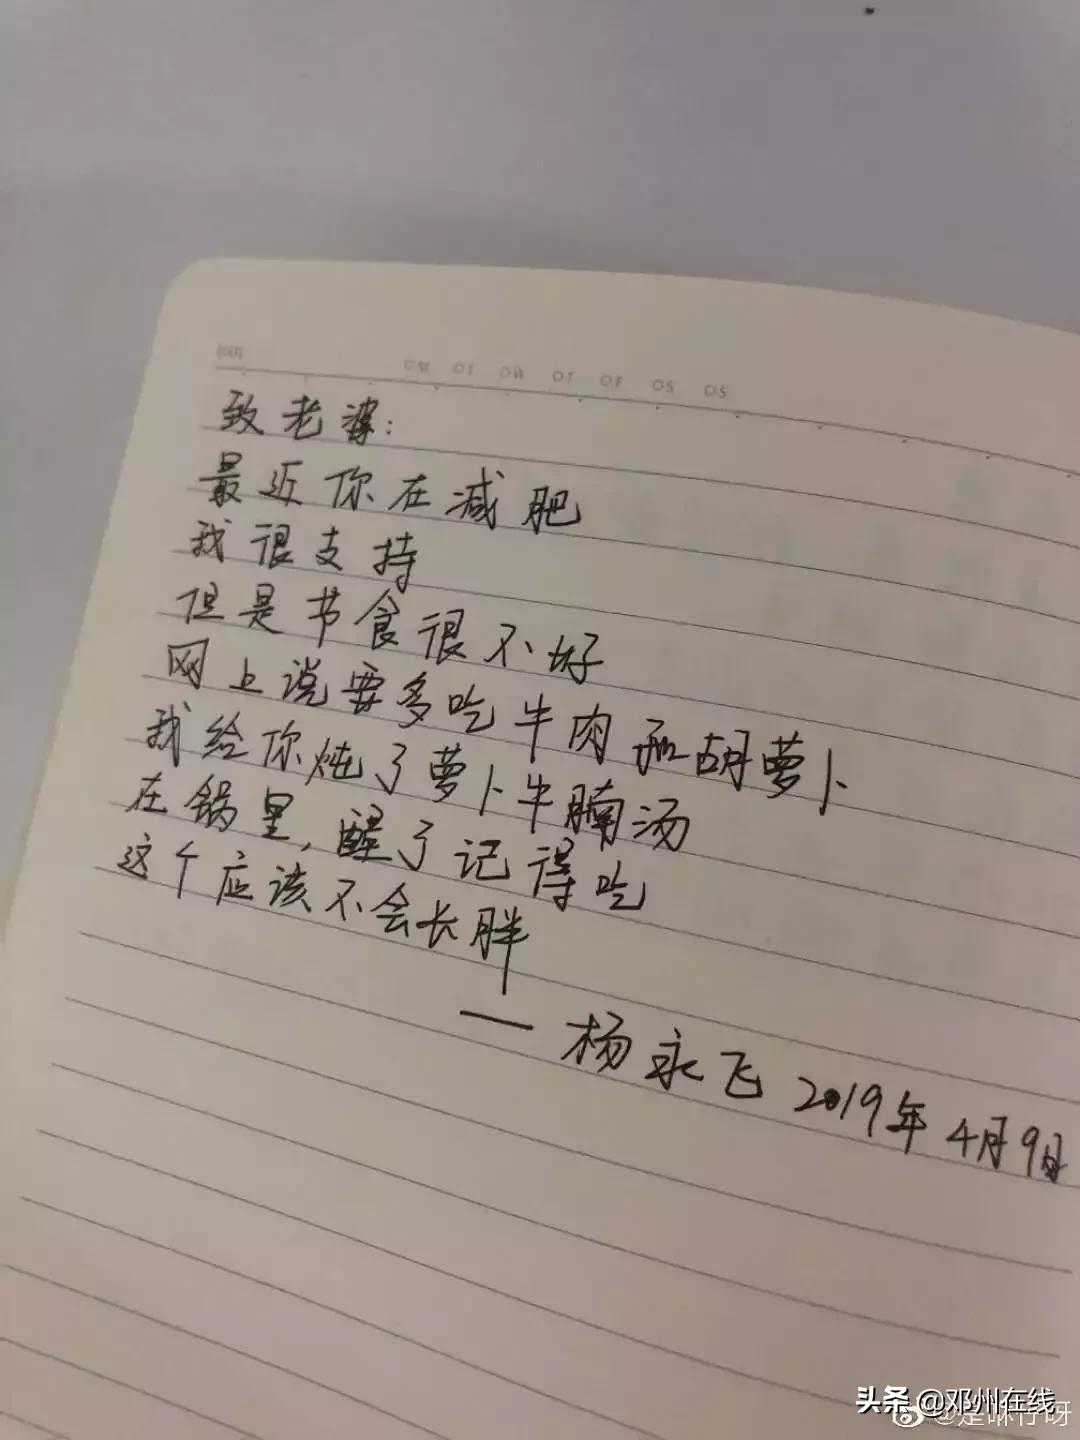 致老婆:
最近你在减肥
我很支持
但是节食很不好
网上说要多吃牛肉和胡萝卜
我给你炖了萝卜牛腩汤
在锅里,醒了记得吃
这个应该不会长胖
— 杨永飞 2019年4月9日
头条 @邓州在线